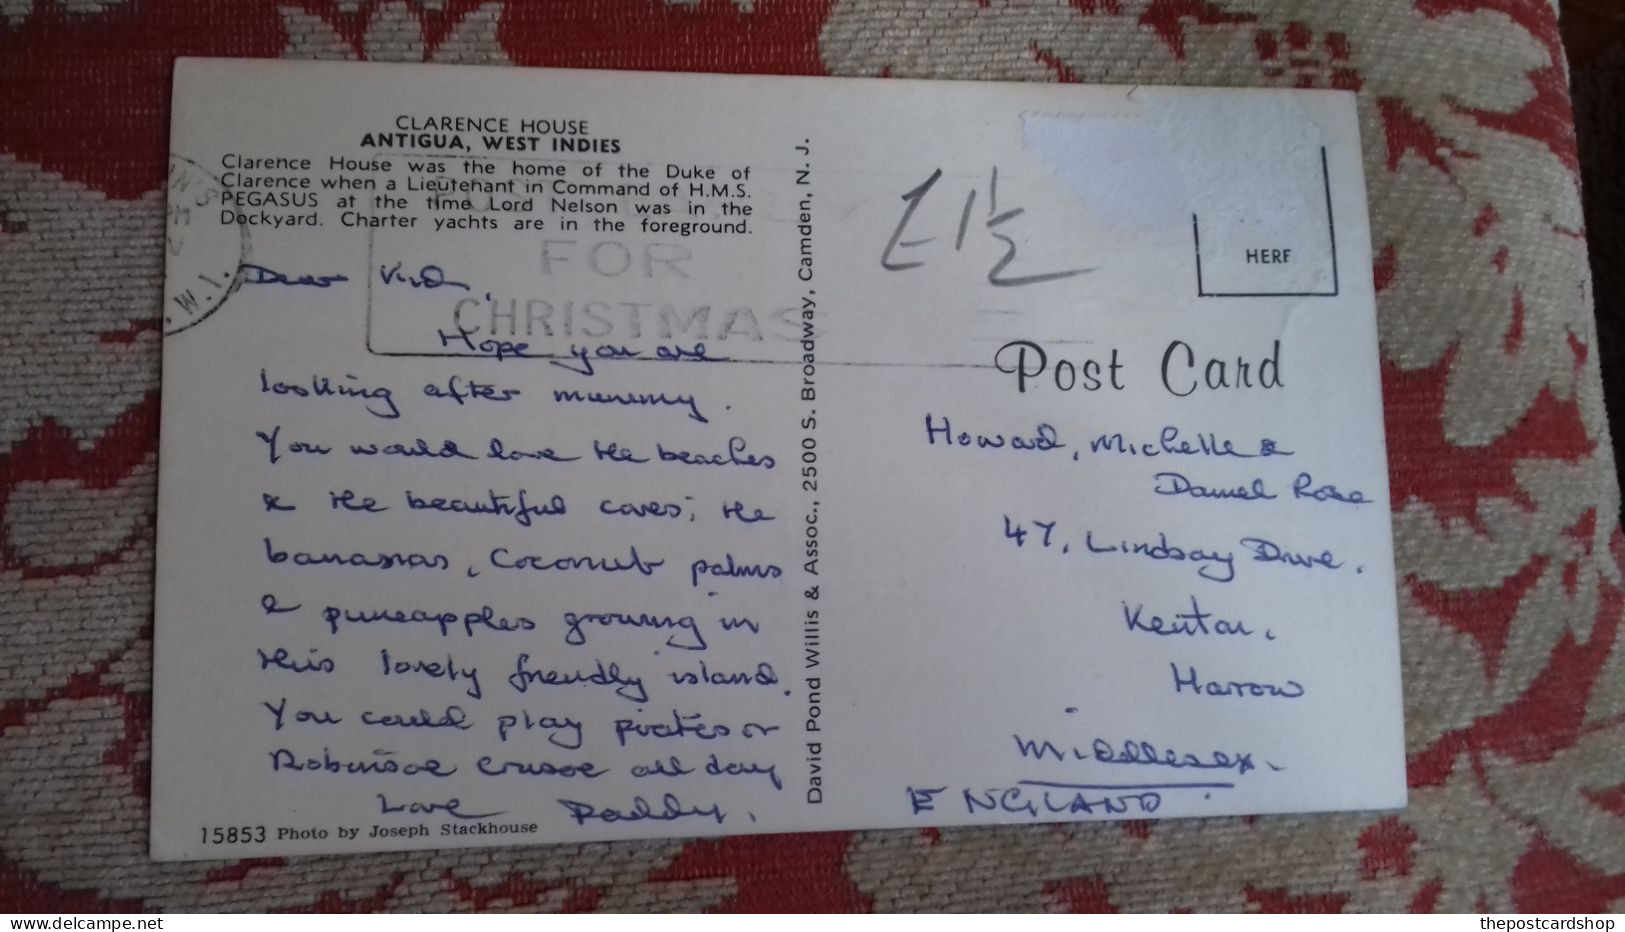 CLARENCE HOUSE
ANTIGUA, WEST INDIES
Clarence House was the home of the Duke of
Clarence when a Lieutenant in Command of H.M.S.
PEGASUS at the time Lord Nelson was in the
Dockyard. Charter yachts are in the foreground.
FOR
CHRISTMAS
W.I.
PM
Dear
Hope you are
looking after mummy.
You would love the beaches
& the beautiful coves; the
bananas, coconut palms
& pineapples growing in
this lovely friendly island.
You could play pirates or
Robinson Crusoe all day
Love Daddy.
15853 Photo by Joseph Stackhouse
David Pond Willis & Assoc., 2500 S. Broadway, Camden, N. J.
£1½
HERE
Post Card
Howard, Michelle &
Daniel Rose
47, Lindsay Drive.
Kenton,
Harrow
Middlesex.
ENGLAND.
thepostcardshop